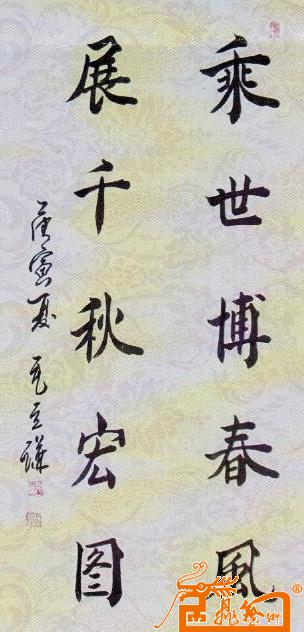 乘世博春風
展千秋宏图
庚寅夏